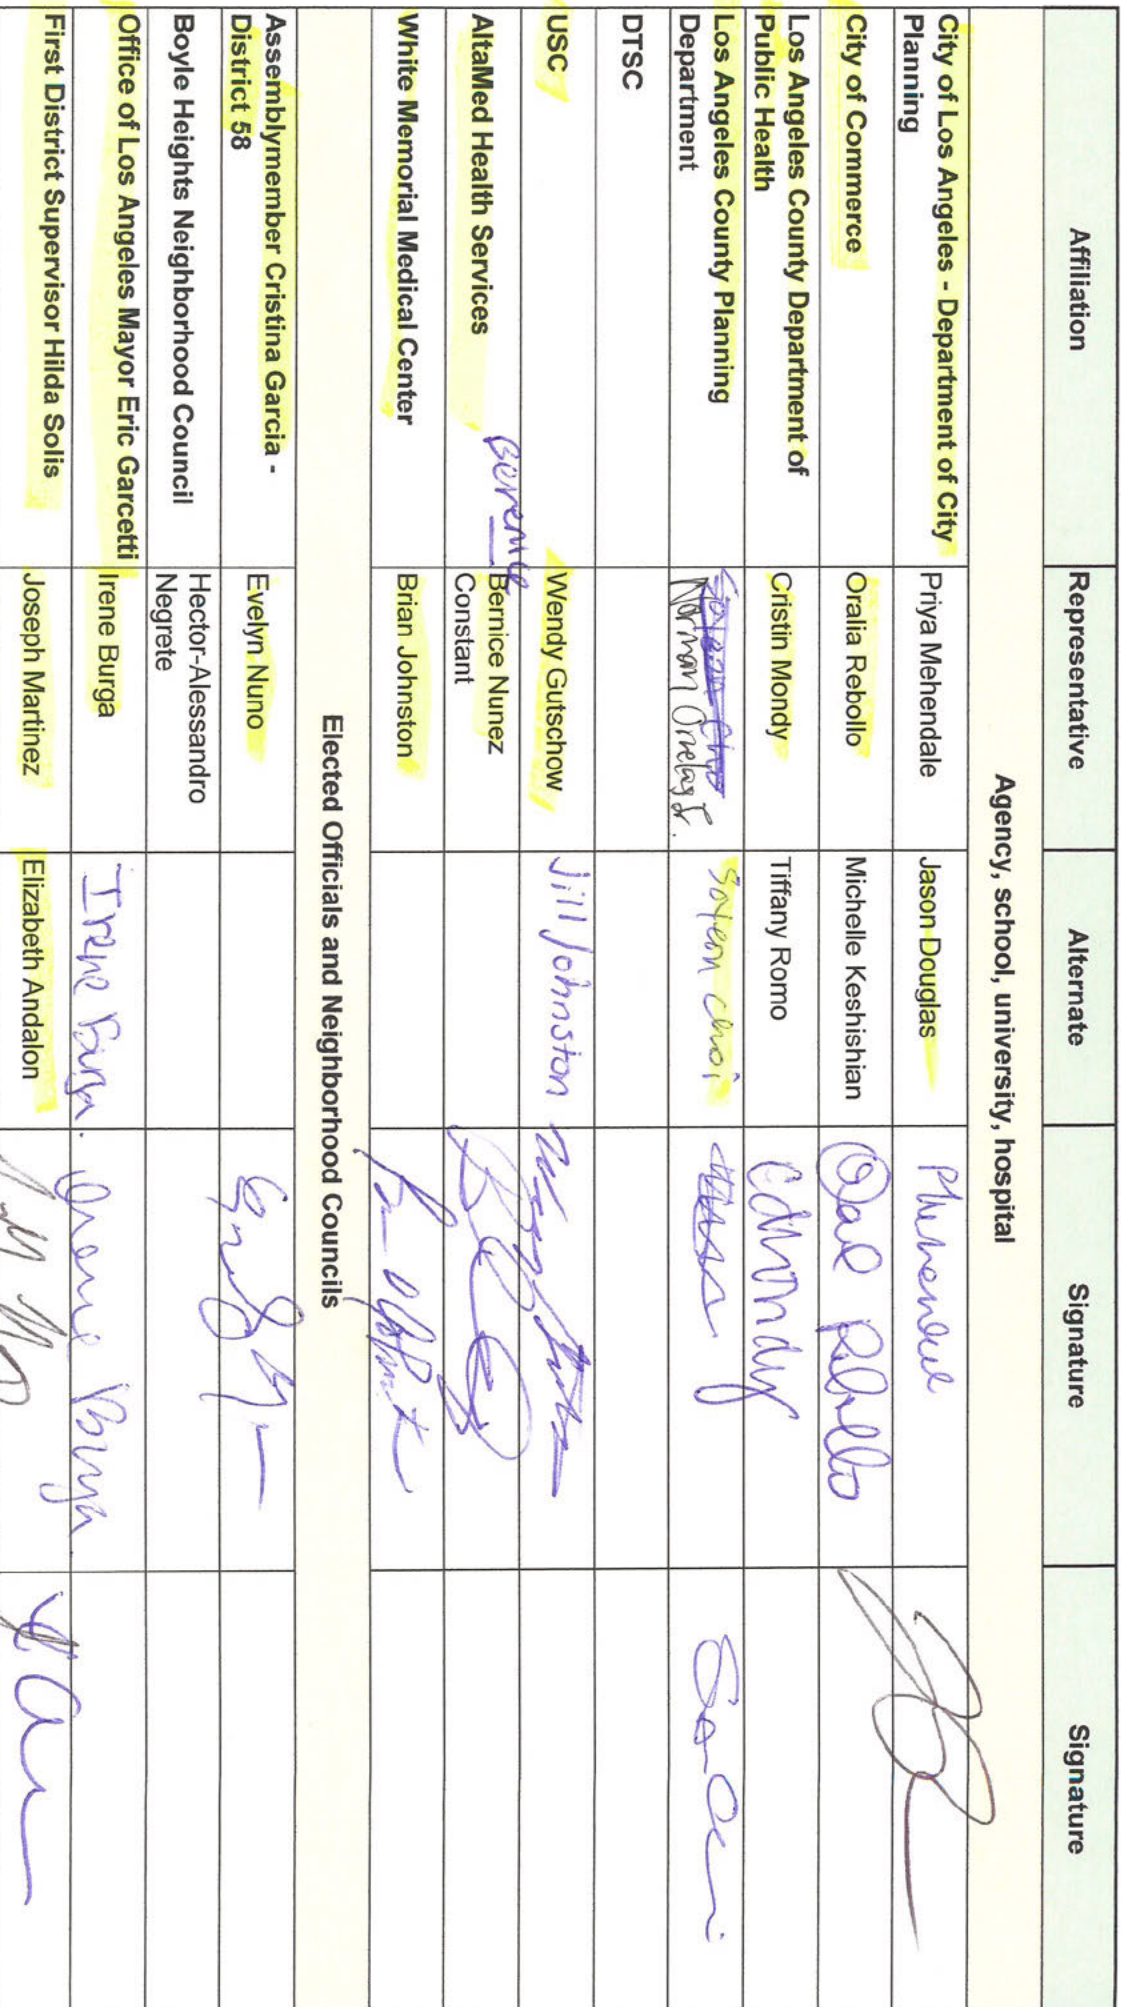 Affiliation Representative Alternate Signature Signature
Agency, school, university, hospital
City of Los Angeles - Department of City Planning Priya Mehendale Jason Douglas PMehendale
City of Commerce Oralia Rebollo Michelle Keshishian Oralia Rebollo
Los Angeles County Department of Public Health Cristin Mondy Tiffany Romo CMondy
Los Angeles County Planning Department Norman Ornelas Jr. Soyeon Choi
DTSC
USC Wendy Gutschow Jill Johnston
AltaMed Health Services Berenice Bernice Nunez Constant
White Memorial Medical Center Brian Johnston
Elected Officials and Neighborhood Councils
Assemblymember Cristina Garcia - District 58 Evelyn Nuno
Boyle Heights Neighborhood Council Hector-Alessandro Negrete
Office of Los Angeles Mayor Eric Garcetti Irene Burga Irene Burga. Irene Burga
First District Supervisor Hilda Solis Joseph Martinez Elizabeth Andalon